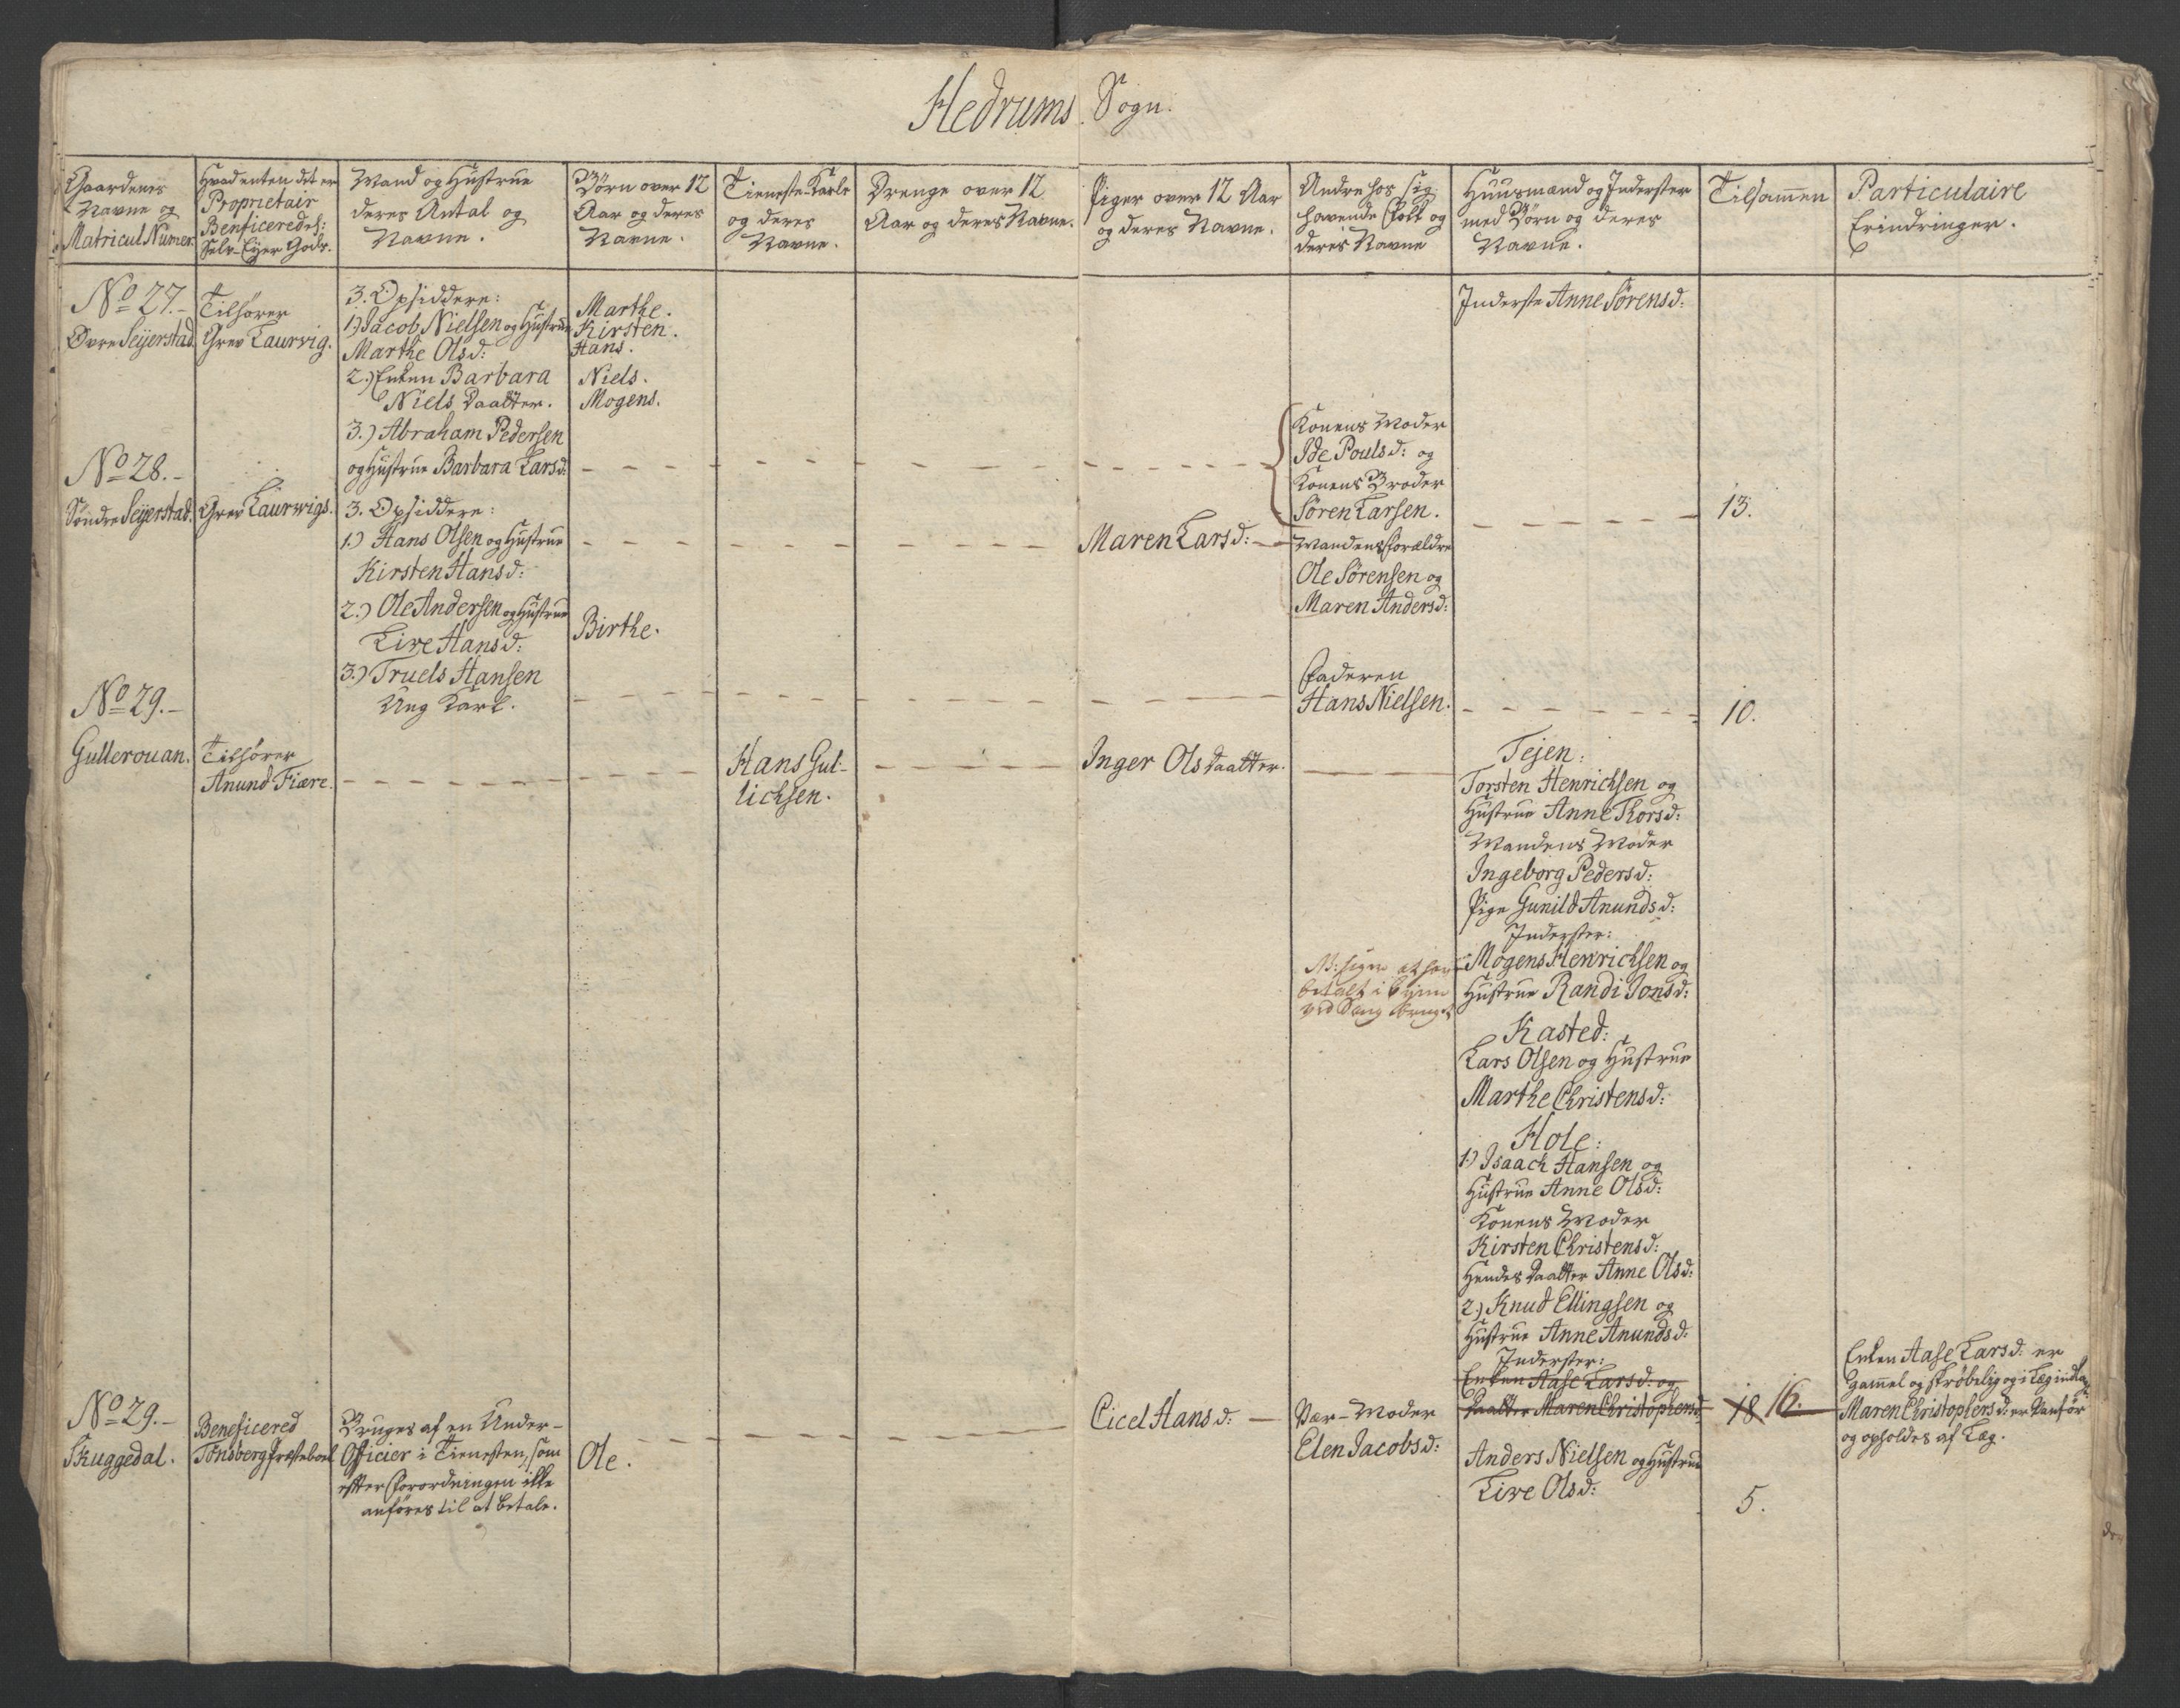 Hedrums Sogn.
Gaardenes
Navne og
Matricul Numer.
Hvad enten det er
Proprietair
Benficered el:
Selv-Eyer Gods.
Mand og Hustrue
deres Antal og
Navne.
Børn over 12
Aar og deres
Navne.
Tieneste Karle
og deres
Navne.
Drenge over 12
Aar og deres Navne.
Piger over 12 Aar
og deres Navne.
Andre hos sig
havende Folk og
deres Navne
Huusmænd og Inderster
med Børn og deres
Navne.
Tilsam̄en
Particulaire
Erindringer.
No 27.-
Øvre Seijerstad
Tilhører
Grev Laurvig.
3. Opsiddere:
1.) Jacob Nielsen og Hustrue
Marthe Olsd:
2.) Enken Barbara
Niels Daatter.
3.) Abraham Pedersen
og Hustrue Barbara Larsd:
Marthe.
Kirsten.
Hans.
Niels.
Mogens.
Konens Moder
Ide Poulsd: og
Konens Broder
Søren Larsen.
Inderste Anne Sørensd:
13.
No 28.-
Søndre Seijerstad.
Grev Laurwigs.
3. Opsiddere:
1.) Hans Olsen og Hustrue
Kirsten Hansd:
2.) Ole Andersen og Hustrue
Live Hansd:
3.) Truels Hansen
Ung Karl.
Birthe.
Maren Larsd:
Mandens Forældre
Ole Sørensen og
Maren Andersd:
Faderen
Hans Nielsen.
10.
No 29.-
Gullerouan.
Tilhører
Anund Fiære.
Hans Gul-
lichsen.
Inger Ols Daatter.
Tejen:
Torsten Henrichsen og
Hustrue Anne Thorsd:
Mandens Moder
Ingeborg Pedersd:
Pige Gunild Anundsd:
Inderster:
Mogens Henrichsen og
Hustrue Randi Jonsd:
NB: siger at have
betalt i Byen
ved
Kasted:
Lars Olsen og Hustrue
Marthe Christensd:
Hole:
1.) Isaach Hansen og
Hustrue Anne Olsd:
Konens Moder
Kirsten Christensd:
Hendes Daatter Anne Olsd:
2.) Knud Ellingsen og
Hustrue Anne Anundsd:
Inderster:
Enken Aase Larsd: og
Daatter Maren Christophersd:
18 16.
Enken Aase Larsd: er
gam̄el og skrøbelig og i Læg indlagt.
Maren Christophersd: er Vanfør
og opholdes af Læg.
No 29.-
Skuggedal.
Beneficered
Tønsberg Præsteboel
Bruges af en Under-
Officier i Tienesten, som
efter Forordningen ikke
anføres til at betale.
Ole.
Cicel Hansd:
Vær-Moder
Elen Jacobsd:
Anders Nielsen og Hustrue
Live Olsd:
5.